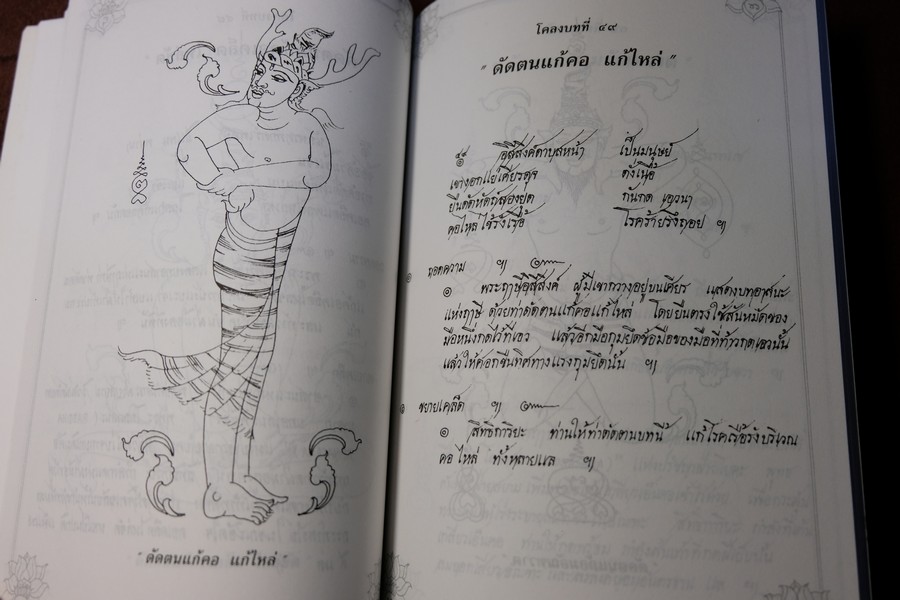 " ดัดตนแก้คอ แก้ไหล่ "
โคลงบทที่ ๔๙
" ดัดตนแก้คอ แก้ไหล่ "
อิสีสิงค์ดาบสหน้า เป็นมนุษย์
เขางอกแย่เศียรดุจ ดั่งเนื้อ
ยืนดัดหัตถ์สองยุด กันกด เอวนา
คอไหล่ไข้รังเรื้อ โรคร้ายรึงถอย ฯ
ถอดความ ฯ
๏ พระฤาษีอิสีสิงค์ ผู้มีเขากวางอยู่บนเศียร แสดงบทอาสนะ
แห่งฤาษี ด้วยท่าดัดตนแก้คอแก้ไหล่ โดยยืนตรงใช้สันหมัดของ
มือหนึ่งกดไว้ที่เอว แล้วอีกมือกุมยึดข้อมือของมือที่ท้าวกดเอวนั้น
แล้วให้ศอกขืนทิศทางแรงกุมยึดนั้น ฯ
ขยายเคล็ด ฯ
๏ สิทธิการิยะ ท่านให้ท่าดัดตนบทนี้ แก้โรคเรื้อรังบริเวณ
คอ ไหล่ ทั้งหลายแล ฯ